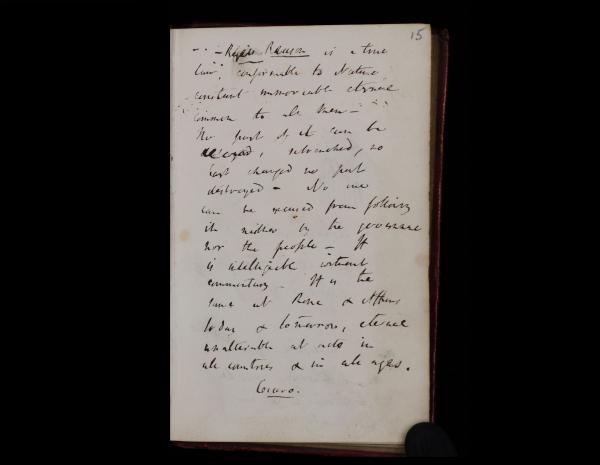 15
- - Right Reason is a true
law, conformable to Nature,
constant immoveable eternal
Common to all Men -
No part of it can be
, retrenched, no
part changed no part
destroyed - No one
can be excused from following
it neither by the governance
nor the people - It
is intelligible without
commentary. It is the
same at Rome & Athens
to day & tomorrow, eternal
unalterable it acts in
all countries & in all ages.
Cicero.